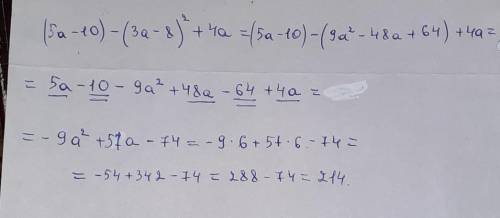 (5a-10)-(3a-8)²+4a=(5a-10)-(9a²-48a+64)+4a=
= 5a-10-9a²+48a-64+4a=
= -9a²+57a-74=-9·6+57·6-74=
= -54+342-74=288-74=214.